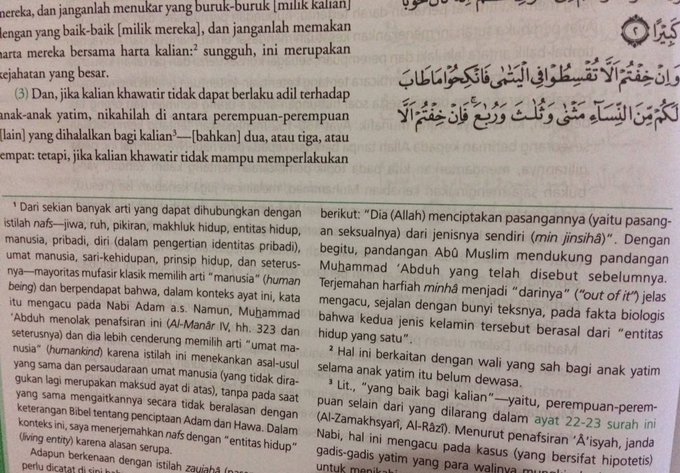 mereka, dan janganlah menukar yang buruk-buruk [milik kalian]
dengan yang baik-baik [milik mereka], dan janganlah memakan
harta mereka bersama harta kalian:² sungguh, ini merupakan
kejahatan yang besar.
(3) Dan, jika kalian khawatir tidak dapat berlaku adil terhadap
anak-anak yatim, nikahilah di antara perempuan-perempuan
[lain] yang dihalalkan bagi kalian³—[bahkan] dua, atau tiga, atau
empat: tetapi, jika kalian khawatir tidak mampu memperlakukan
كَبِيرًا ٢
وَإِنْ خِفْتُمْ أَلَّا تُقْسِطُوا۟ فِى الْيَتَٰمَىٰ فَانكِحُوا۟ مَا طَابَ
لَكُم مِّنَ النِّسَآءِ مَثْنَىٰ وَثُلَٰثَ وَرُبَٰعَ ۖ فَإِنْ خِفْتُمْ أَلَّا
¹ Dari sekian banyak arti yang dapat dihubungkan dengan
istilah nafs—jiwa, ruh, pikiran, makhluk hidup, entitas hidup,
manusia, pribadi, diri (dalam pengertian identitas pribadi),
umat manusia, sari-kehidupan, prinsip hidup, dan seterus-
nya—mayoritas mufasir klasik memilih arti "manusia" (human
being) dan berpendapat bahwa, dalam konteks ayat ini, kata
itu mengacu pada Nabi Adam a.s. Namun, Muhammad
'Abduh menolak penafsiran ini (Al-Manâr IV, hh. 323 dan
seterusnya) dan dia lebih cenderung memilih arti "umat ma-
nusia" (humankind) karena istilah ini menekankan asal-usul
yang sama dan persaudaraan umat manusia (yang tidak dira-
gukan lagi merupakan maksud ayat di atas), tanpa pada saat
yang sama mengaitkannya secara tidak beralasan dengan
keterangan Bibel tentang penciptaan Adam dan Hawa. Dalam
konteks ini, saya menerjemahkan nafs dengan "entitas hidup"
(living entity) karena alasan serupa.
Adapun berkenaan dengan istilah zaujahâ
perlu dicatat di sini
berikut: "Dia (Allah) menciptakan pasangannya (yaitu pasang-
an seksualnya) dari jenisnya sendiri (min jinsihâ)". Dengan
begitu, pandangan Abû Muslim mendukung pandangan
Muhammad 'Abduh yang telah disebut sebelumnya.
Terjemahan harfiah minhâ menjadi "darinya" ("out of it") jelas
mengacu, sejalan dengan bunyi teksnya, pada fakta biologis
bahwa kedua jenis kelamin tersebut berasal dari "entitas
hidup yang satu".
² Hal ini berkaitan dengan wali yang sah bagi anak yatim
selama anak yatim itu belum dewasa.
³ Lit., "yang baik bagi kalian"—yaitu, perempuan-perem-
puan selain dari yang dilarang dalam ayat 22-23 surah ini
(Al-Zamakhsyarî, Al-Râzî). Menurut penafsiran 'Â'isyah, janda
Nabi, hal ini mengacu pada kasus (yang bersifat hipotetis)
gadis-gadis yatim yang para walinya mungkin
untuk menikahi